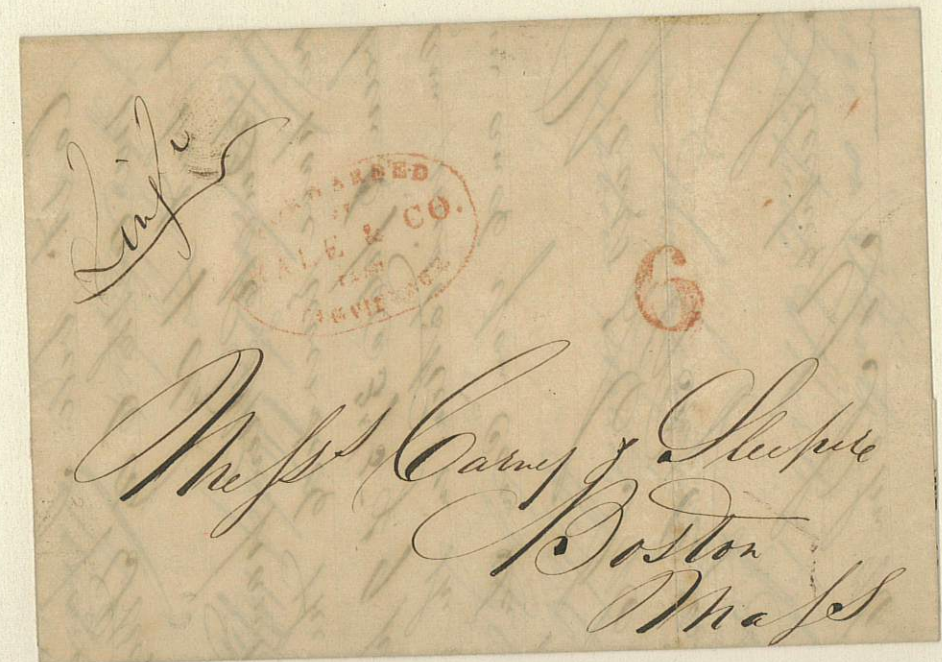 FORWARDED
BY
HALE & CO.
FROM
PROVIDENCE
6
Mess^s Carney & Sleeper
Boston
Mass